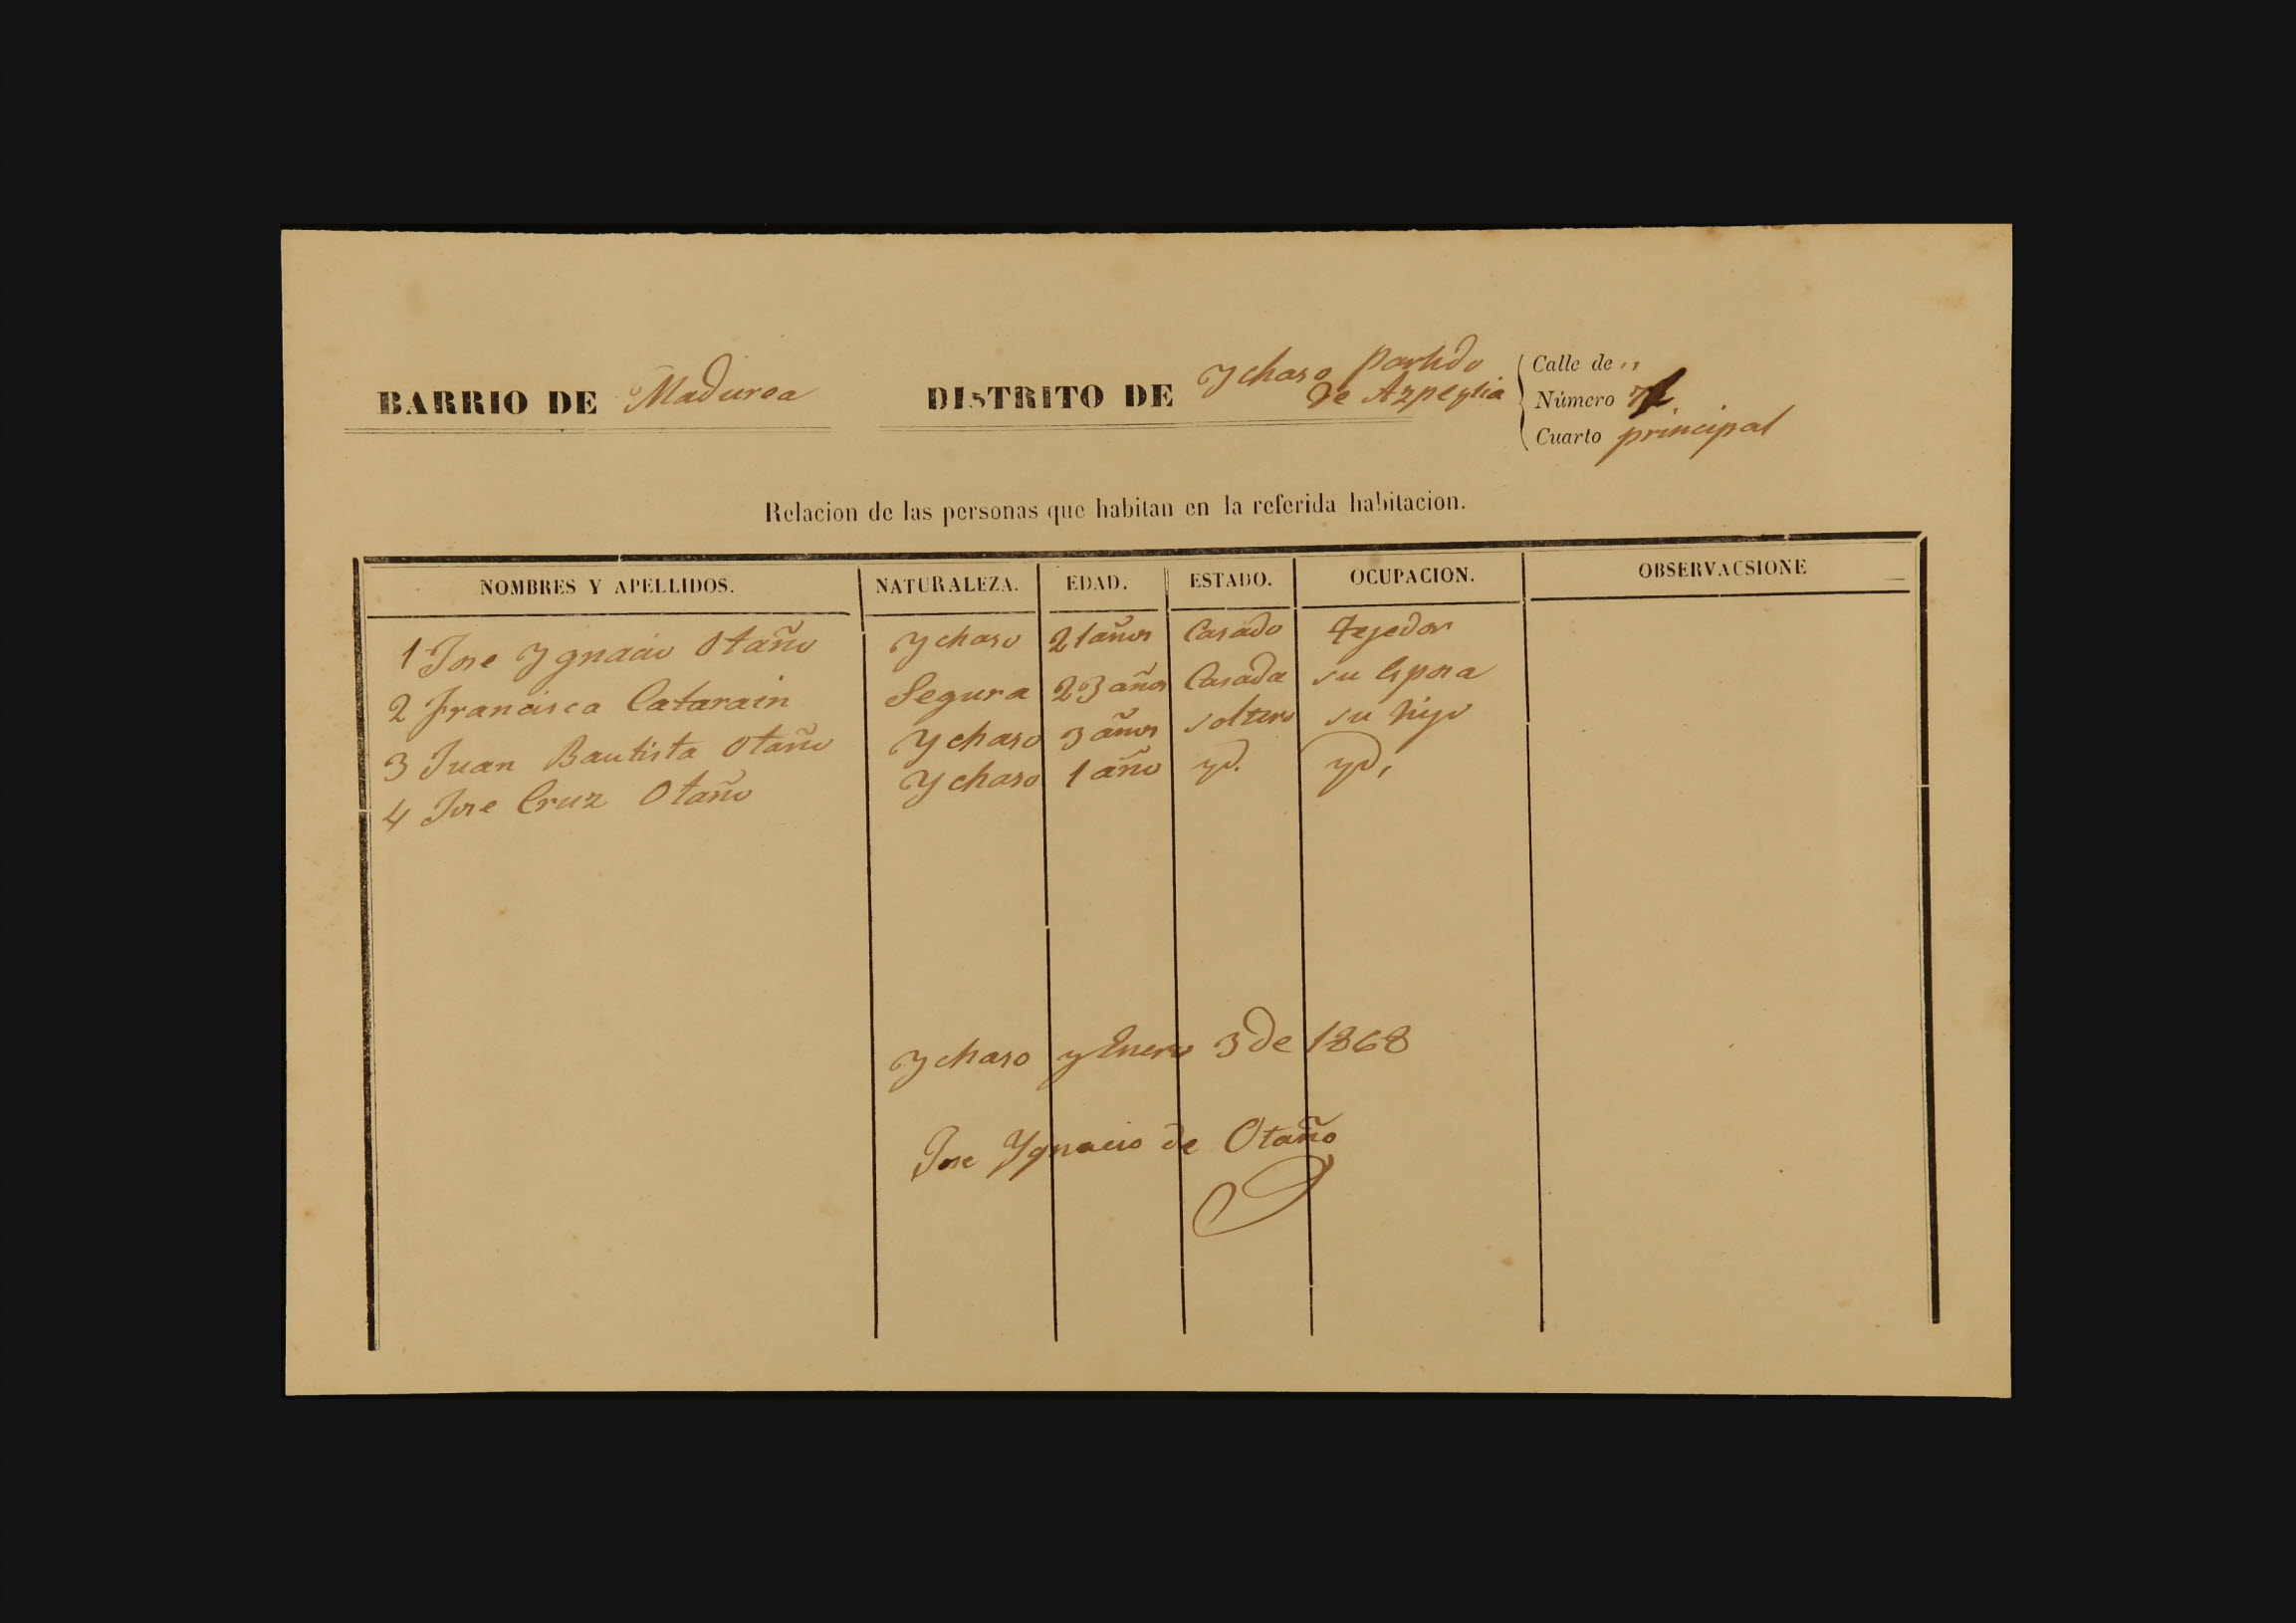 BARRIO DE Maduroa DISTRITO DE Ychaso Partido de Azpeytia
Calle de ,,
Número
Cuarto principal
Relacion de las personas que habitan en la referida habitacion.
NOMBRES Y APELLIDOS. NATURALEZA. EDAD. ESTADO. OCUPACION. OBSERVACSIONE
1 Jose Ygnacio Otaño Ychaso 21 años Casado tejedor
2 Francisca Catarain Segura 23 años Casada su Esposa
3 Juan Bautista Otaño Ychaso 3 años soltero su hijo
4 Jose Cruz Otaño Ychaso 1 año yd. yd,
Ychaso y Enero 3 de 1868
Jose Ygnacio de Otaño